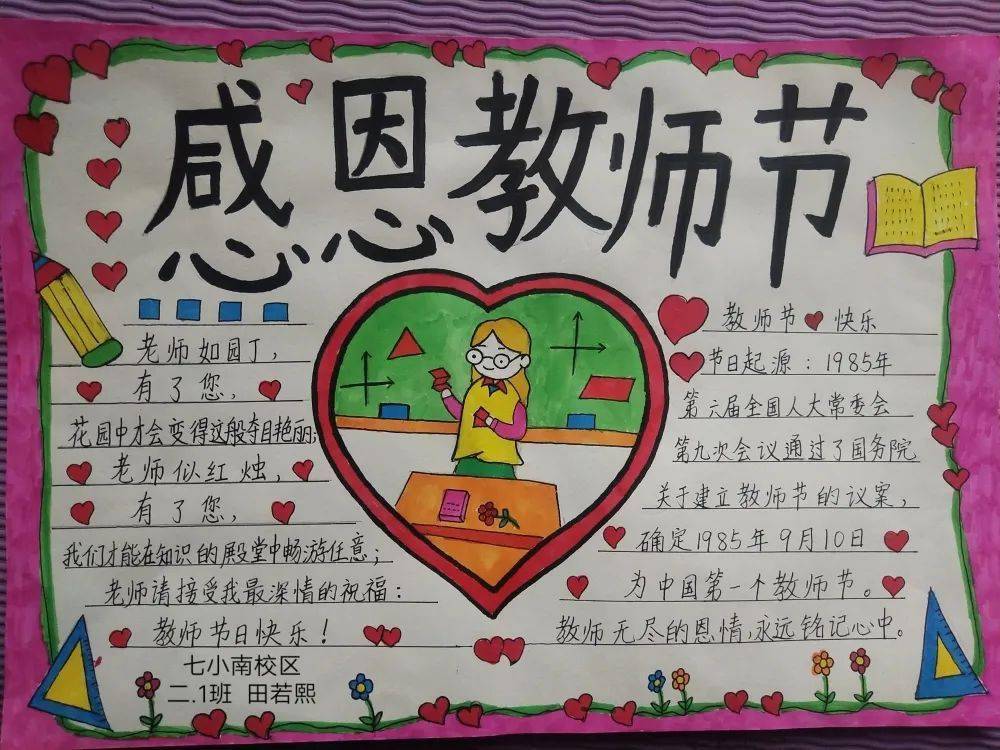 感恩教师节
老师如园丁，
有了您，
花园中才会变得这般夺目艳丽；
老师似红烛，
有了您，
我们才能在知识的殿堂中畅游任意；
老师请接受我最深情的祝福：
教师节日快乐！
七小南校区
二.1班 田若熙
教师节快乐
节日起源：1985年
第六届全国人大常委会
第九次会议通过了国务院
关于建立教师节的议案，
确定1985年9月10日
为中国第一个教师节。
教师无尽的恩情，永远铭记心中。